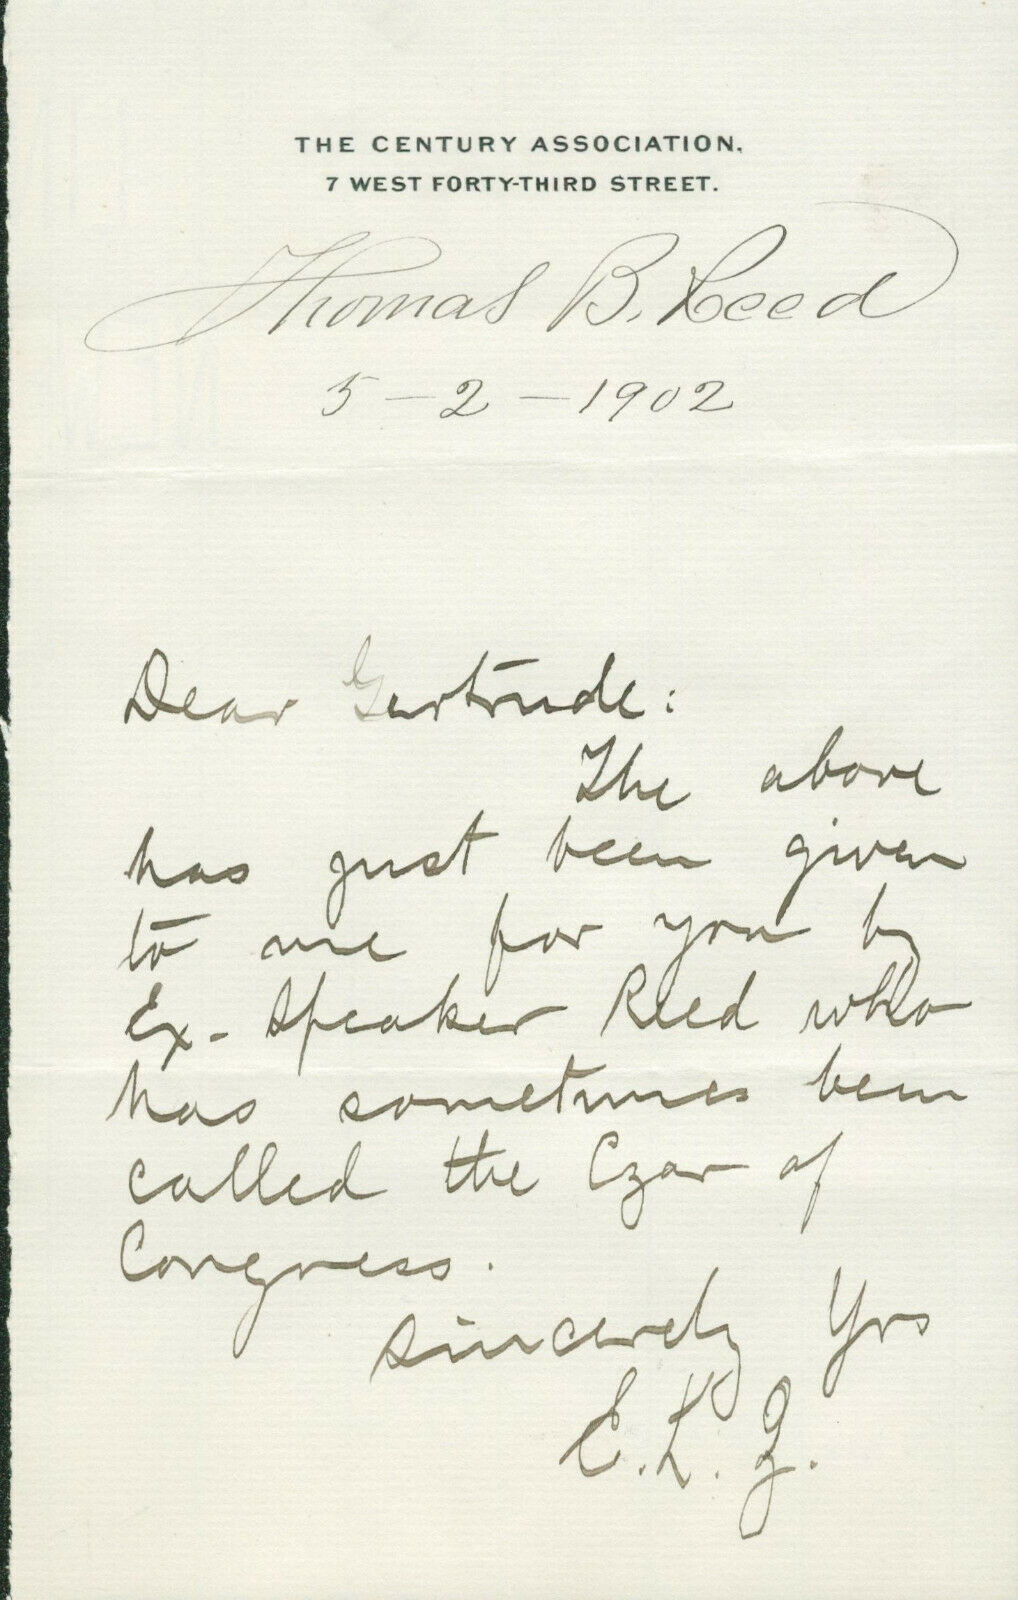 THE CENTURY ASSOCIATION,
7 WEST FORTY-THIRD STREET.
Thomas B. Reed
5-2-1902
Dear Gertrude:
The above
has just been given
to me for you by
Ex-Speaker Reed who
has sometimes been
called the Czar of
Congress.
Sincerely Yrs
E. K.